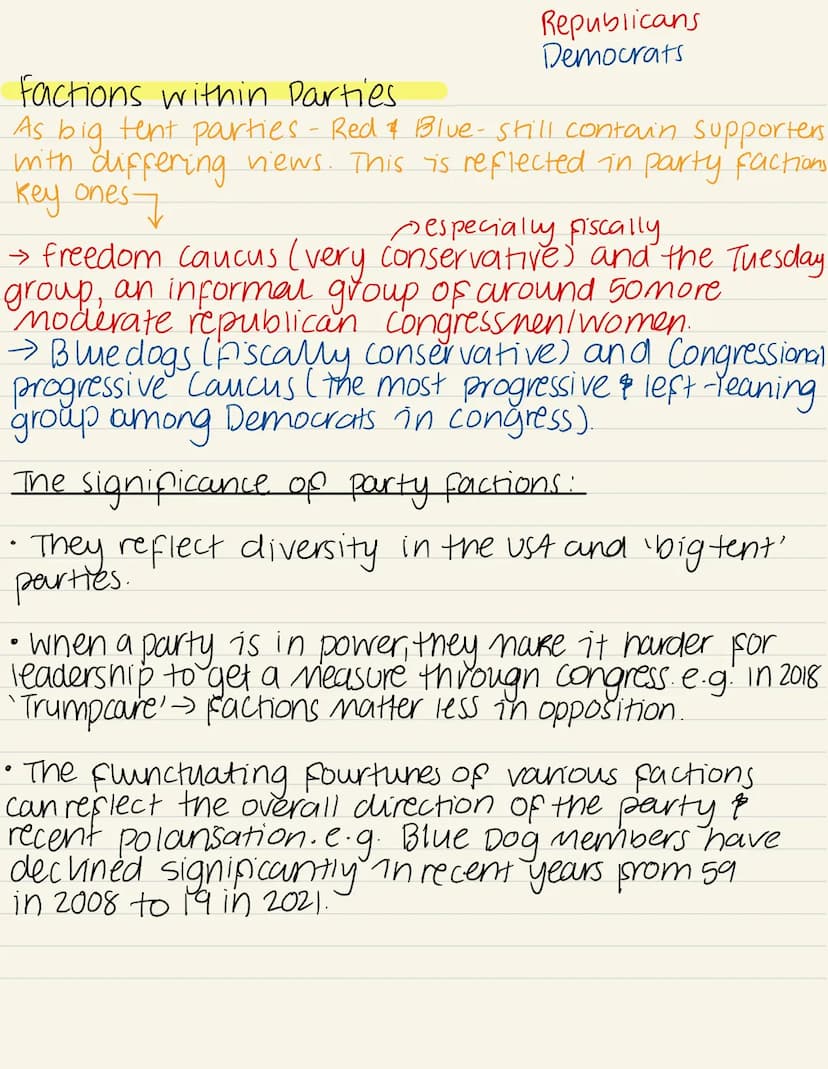 Republicans
Democrats
Factions within Parties
As big tent parties - Red & Blue - still contain supporters
with differing views. This is reflected in party factions
Key ones
especially fiscally
→ Freedom Caucus (very conservative) and the Tuesday
group, an informal group of around 50 more
moderate republican congressmen/women.
→ Bluedogs (fiscally conservative) and Congressional
progressive Caucus (the most progressive & left-leaning
group among Democrats in congress).
The significance of party factions:
• They reflect diversity in the USA and 'big tent'
parties.
• When a party is in power, they make it harder for
leadership to get a measure through congress. e.g. in 2018
'Trumpcare' → factions matter less in opposition.
• The flunctuating fourtunes of various factions
can reflect the overall direction of the party &
recent polarisation. e.g. Blue Dog members have
declined significantly in recent years from 59
in 2008 to 19 in 2021.